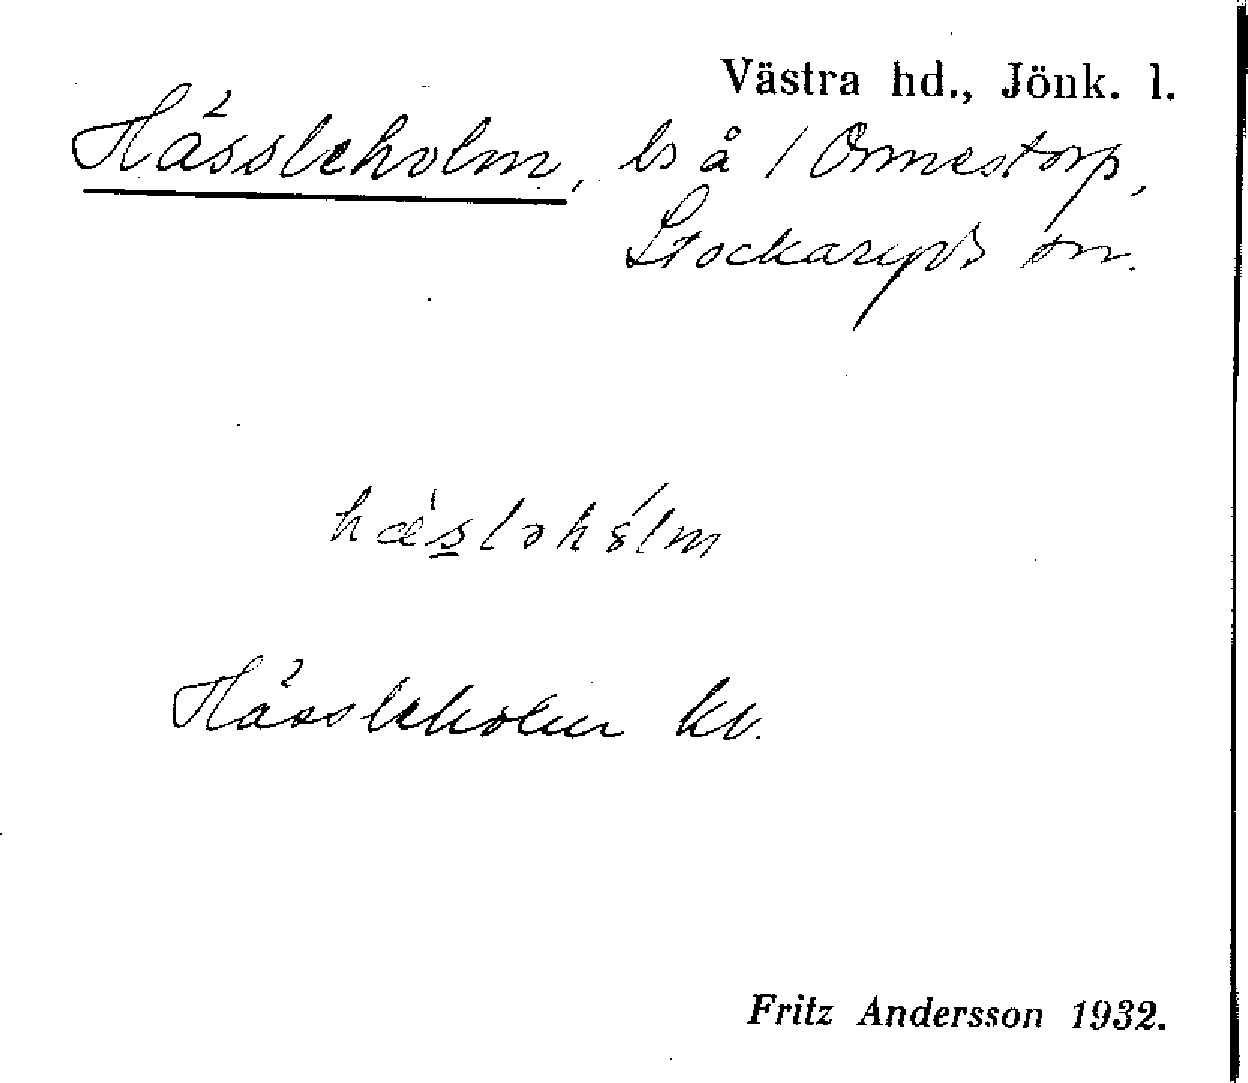 Västra hd., Jönk. l.
Hässleholm, ls å 1 Ormestorp,
Stockaryds sn.
hæ̀sləhólm
Hässleholm kt.
Fritz Andersson 1932.